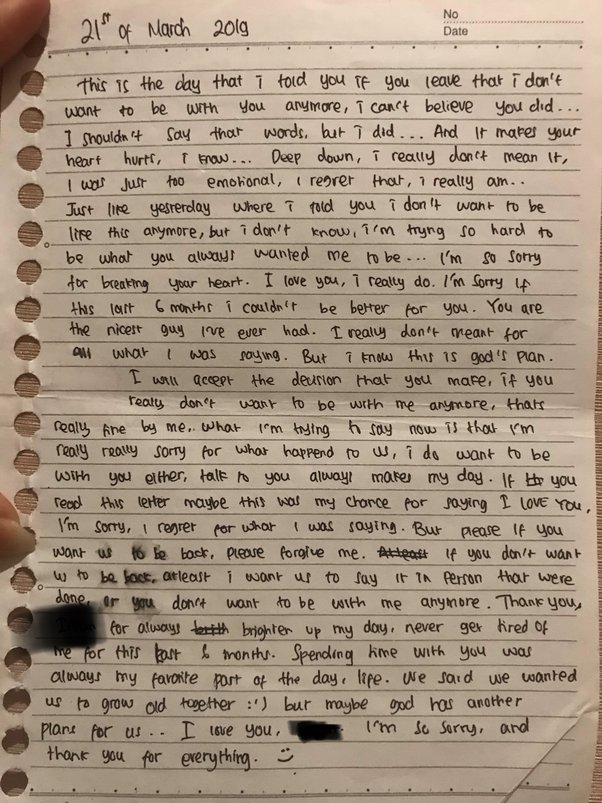 No
Date
21st of March 2019
This is the day that i told you if you leave that i don't
want to be with you anymore, i can't believe you did...
I shouldn't say that words, but i did... And it makes your
heart hurts, i know... Deep down, i really don't mean it,
I was just too emotional, i regret that, i really am..
Just like yesterday where i told you i don't want to be
like this anymore, but i don't know, i'm tryng so hard to
be what you always wanted me to be... I'm so sorry
for breaking your heart. I love you, i really do. I'm sorry if
this last 6 months i couldn't be better for you. You are
the nicest guy I've ever had. I really don't meant for
all what I was saying. But i know this is god's plan.
I will accept the decision that you make, if you
really don't want to be with me anymore, thats
really fine by me.. what I'm trying to say now is that I'm
really really sorry for what happend to us, i do want to be
with you either, talk to you always makes my day. If you
read this letter maybe this was my chance for saying I LOVE YOU,
I'm sorry, I regret for what I was saying. But please if you
want us to be back, please forgive me. Atleast if you don't want
to be back, atleast i want us to say it in person that were
done, or you don't want to be with me anymore. Thank you,
for always brighten up my day, never get tired of
me for this last 6 months. Spending time with you was
always my favorite part of the day, life. We said we wanted
us to grow old together :') but maybe god has another
plans for us.. I love you, I'm so sorry, and
thank you for everything. :)